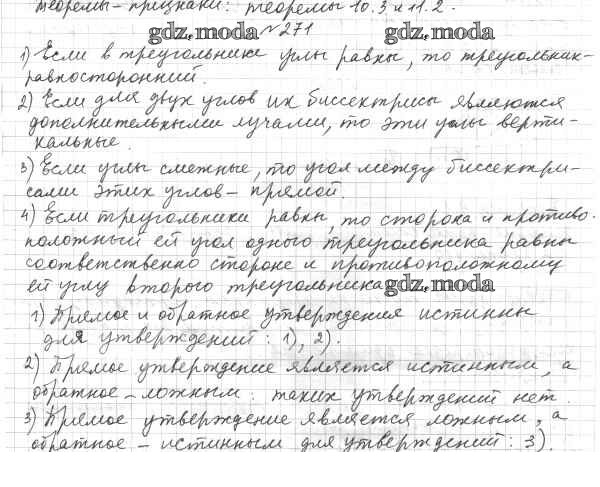 Теоремы-признаки: теоремы 10.3 и 11.2.
gdz.moda № 271 gdz.moda
1) Если в треугольнике углы равны, то треугольник-
равносторонний.
2) Если для двух углов их биссектрисы являются
дополнительными лучами, то эти углы верти-
кальные.
3) Если углы смежные, то угол между биссектри-
сами этих углов - прямой.
4) Если треугольники равны, то сторона и противо-
положный ей угол одного треугольника равны
соответственно стороне и противоположному
ей углу второго треугольника gdz.moda
1) Прямое и обратное утверждения истинны
для утверждений: 1), 2).
2) Прямое утверждение является истинным, а
обратное - ложным: таких утверждений нет.
3) Прямое утверждение является ложным, а
обратное - истинным для утверждений: 3).